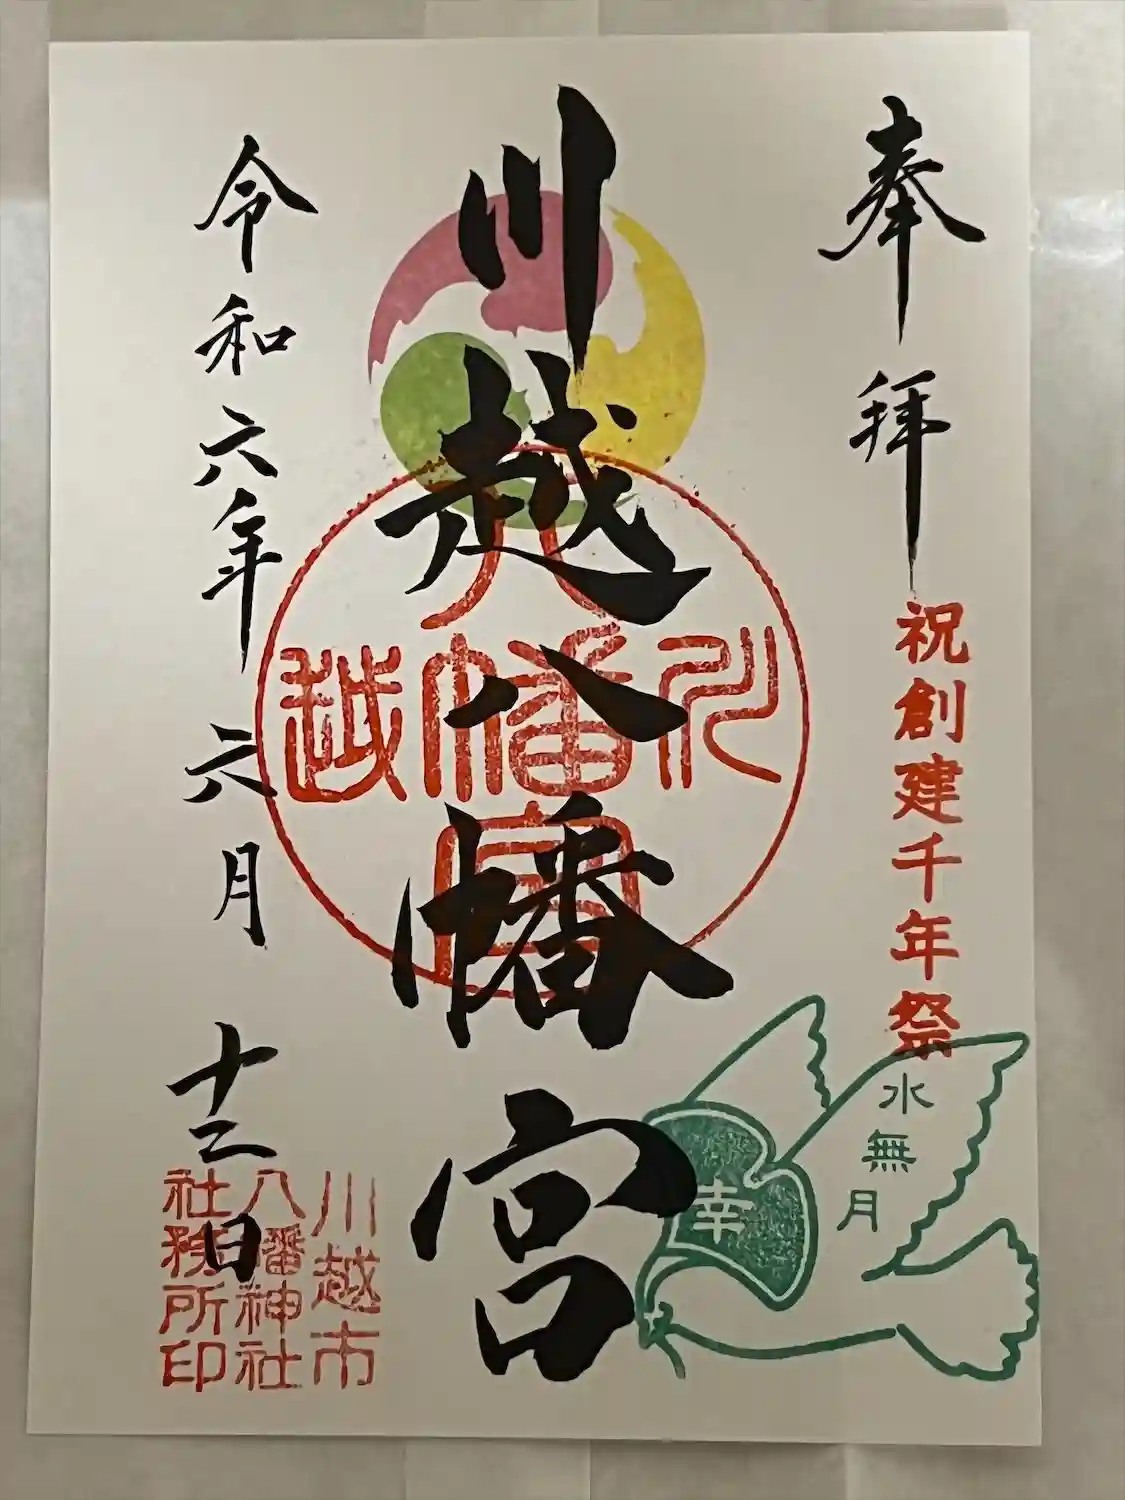 奉拝
祝創建千年祭
水無月
幸
川越八幡宮
川越八幡宮
令和六年六月十二日
川越市
八幡神社
社務所印